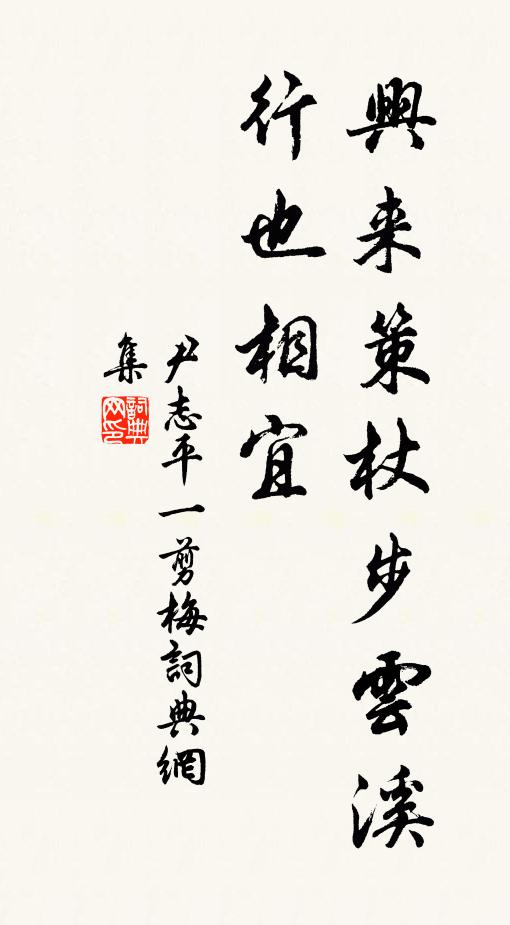 興来策杖步雲溪
行也相宜
尹志平一剪梅詞典網
集
詞典
网印